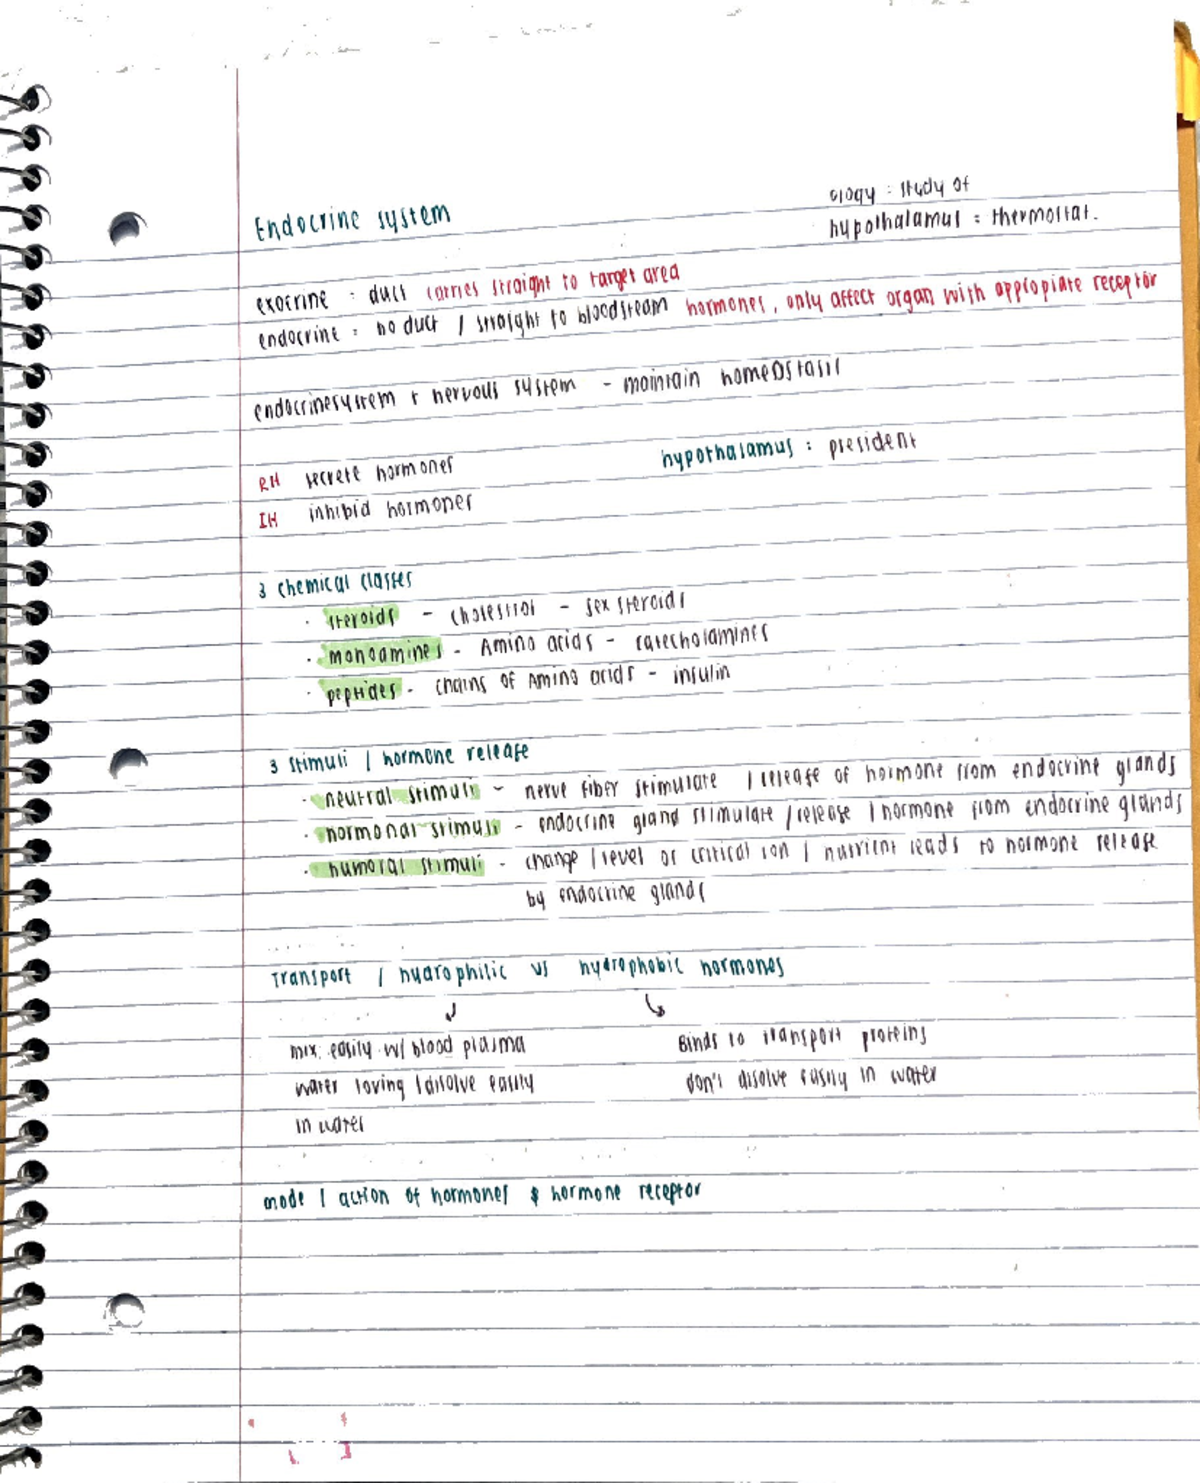 ology : study of
Endocrine system
hypothalamus = thermostat.
exocrine : duct carries straight to target area
endocrine : no duct / straight to bloodstream hormones, only affect organ with appropiate receptor
endocrinesystem + nervous system - maintain homeostasis
hypothalamus : president
RH secrete hormones
IH inhibid hormones
3 chemical classes
· steroids - cholestrol - sex steroids
· monoamines - Amino acids - catecholamines
· peptides - chains of Amino acids - insulin
3 stimuli / hormone release
· neutral stimuli - nerve fiber stimulate / release of hormone from endocrine glands
· hormonal stimuli - endocrine gland stimulate / release / hormone from endocrine glands
· humoral stimuli - change / level of critical ion / nutrient leads to hormone release
by endocrine glands
Transport / hydrophilic vs hydrophobic hormones
mix easily w/ blood plasma Binds to transport proteins
water loving / disolve easily don't disolve easily in water
in water
mode / action of hormones & hormone receptor